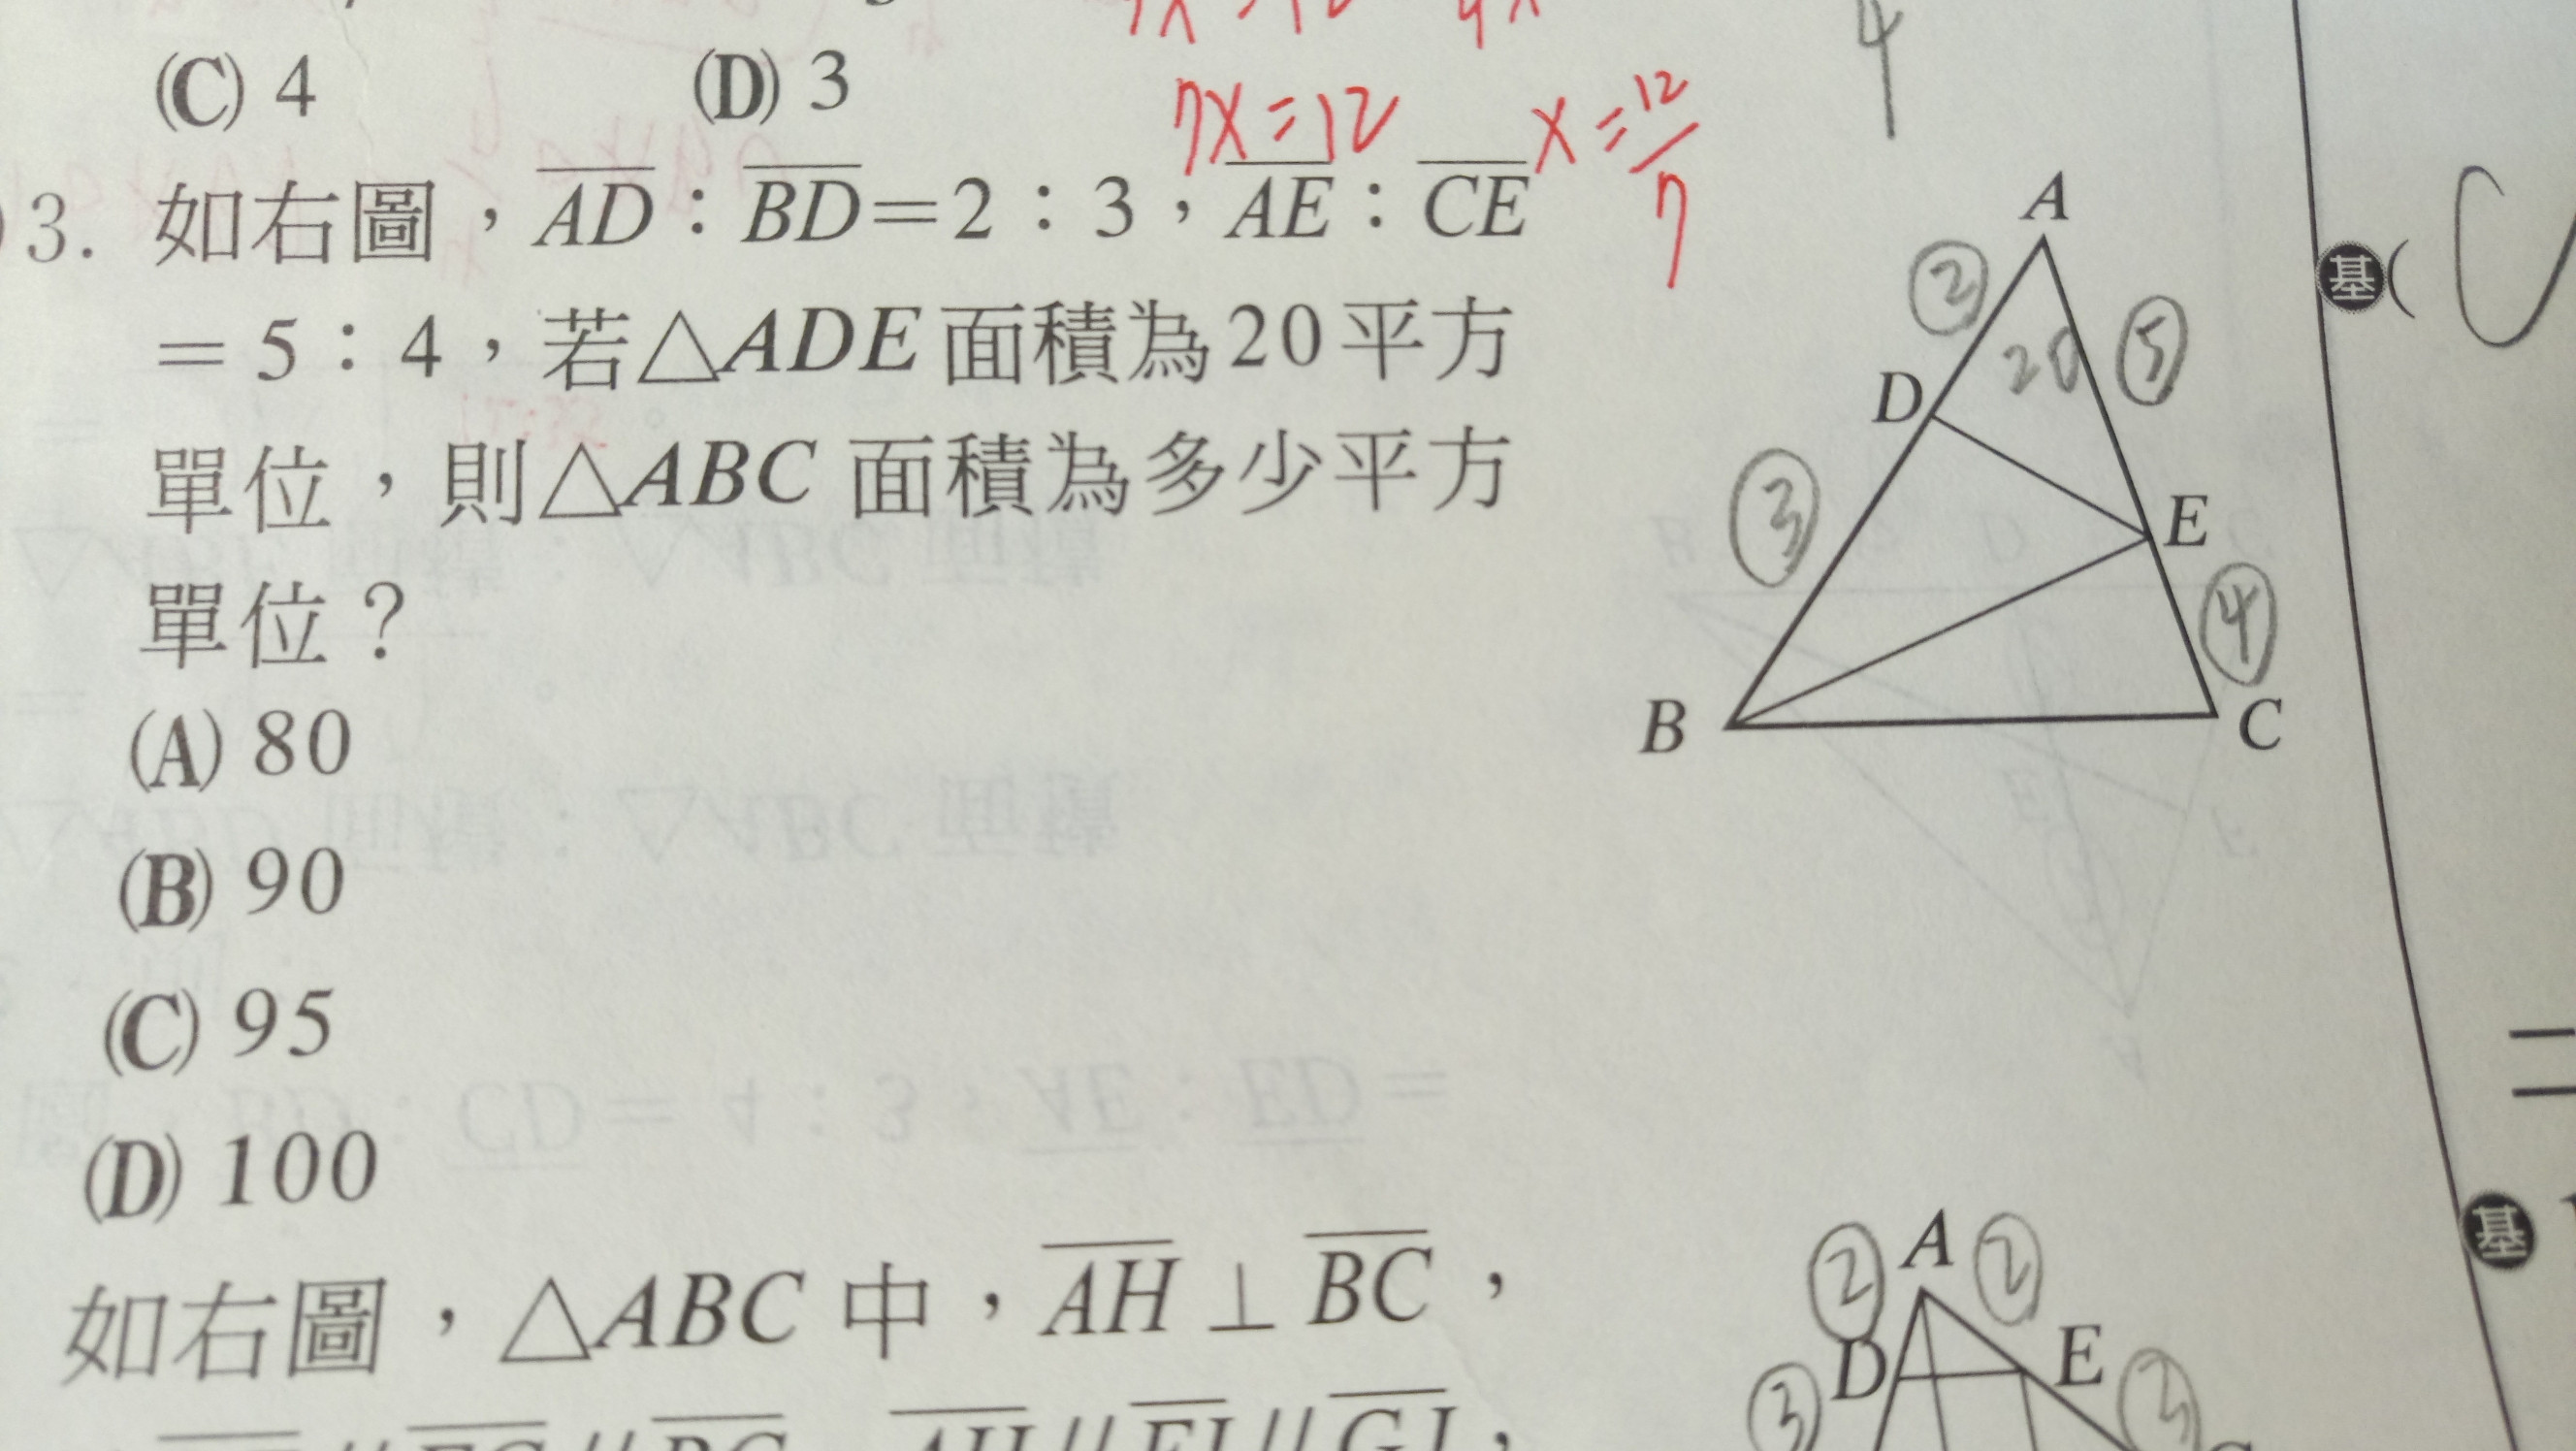 (C) 4 (D) 3
7x=12 x=12/7
4
3. 如右圖，AD：BD=2：3，AE：CE
=5：4，若△ADE面積為20平方
單位，則△ABC 面積為多少平方
單位？
(A) 80
(B) 90
(C) 95
(D) 100
A
② 20 ⑤
D
③
E
④
B C
基(
如右圖，△ABC 中，AH⊥BC，
② A ②
D E
③ ③
基